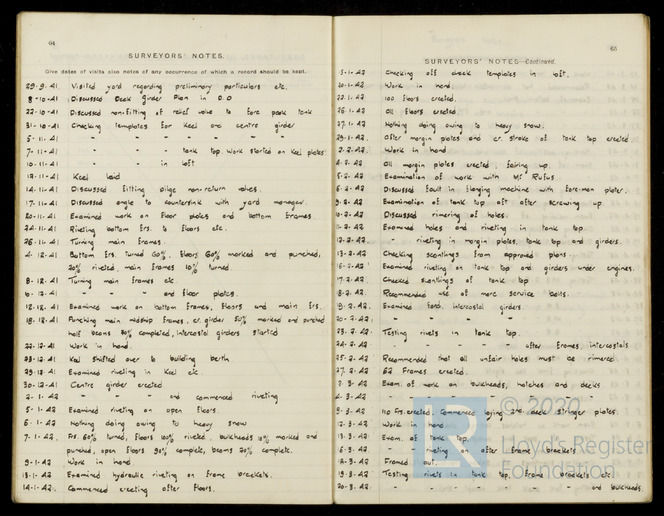 64
SURVEYORS' NOTES.
Give dates of visits also notes of any occurrence of which a record should be kept.
29-9-41 Visited yard regarding preliminary particulars etc.
8-10-41 Discussed Deck Girder Plan in D.O
22-10-41 Discussed non-fitting of relief valve to fore peak tank
31-10-41 Checking templates for keel and centre girder
5-11-41 " " " " " "
7-11-41 " " " tank top. Work started on keel plates
10-11-41 " " in loft
12-11-41 Keel laid
14-11-41 Discussed fitting bilge non-return valves.
17-11-41 Discussed angle to countersink with yard manager.
20-11-41 Examined work on floor plates and bottom frames
24-11-41 Riveting bottom frs. to floors etc.
26-11-41 Turning main frames.
4-12-41 Bottom frs. turned 60%. Floors 60% marked and punched,
20% riveted, main frames 10% turned.
8-12-41 Turning main frames etc
10-12-41 " " " and floor plates.
12-12-41 Examined work on bottom frames, floors and main frs.
18-12-41 Punching main midship frames, cr. girder 50% marked and punched
half beams 80% completed, intercostal girders started
22-12-41 Work in hand.
23-12-41 Keel shifted over to building berth
29-12-41 Examined riveting in keel etc.
30-12-41 Centre girder erected
2-1-42 " " " and commenced riveting
5-1-42 Examined riveting on open floors.
6-1-42 Nothing doing owing to heavy snow
7-1-42 Frs. 60% turned, floors 100% riveted, bulkheads 10% marked and
punched, open floors 90% complete, beams 20% complete.
9-1-42 Work in hand.
13-1-42 Examined hydraulic riveting on frame brackets.
14-1-42 Commenced erecting after floors.
65
SURVEYORS' NOTES—Continued.
15-1-42 Checking off deck templates in loft.
20-1-42 Work in hand
22-1-42 100 floors erected.
26-1-42 All floors erected
27-1-42 Nothing doing owing to heavy snow.
29-1-42 After margin plates and cr. strake of tank top erected
2-2-42 Work in hand
4-2-42 All margin plates erected, fairing up.
5-2-42 Examination of work with Mr Rufus
6-2-42 Discussed fault in flanging machine with foreman plater.
9-2-42 Examination of tank top aft after screwing up
10-2-42 Discussed rimering of holes.
11-2-42 Examined holes and riveting in tank top
12-2-42 " riveting in margin plates, tank top and girders.
13-2-42 Checking scantlings from approved plans
16-2-42 Examined riveting on tank top and girders under engines.
17-2-42 Checked scantlings of tank top
18-2-42 Recommended use of more service bolts.
19-2-42 Examined ford. intercostal girders
20-2-42 " " " "
23-2-42 Testing rivets in tank top.
24-2-42 " " " " " after frames, intercostals
25-2-42 Recommended that all unfair holes must be rimered.
27-2-42 62 Frames erected.
2-3-42 Exam. of work on bulkheads, hatches and decks
4-3-42 " " " " " "
9-3-42 110 Frs. erected, commenced laying 2nd deck stringer plates
12-3-42 Work in hand.
13-3-42 Exam. of tank top.
16-3-42 " riveting on after frame brackets
18-3-42 Framed out.
19-3-42 Testing rivets in tank top, frame brackets etc.
20-3-42 " " " " " " " and bulkheads.
LR
© 2020
Lloyd's Register
Foundation